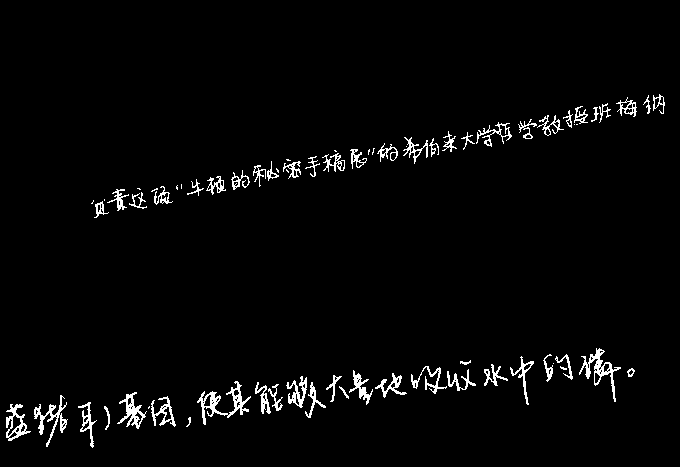 负责这项“牛顿的秘密手稿展”的希伯来大学哲学教授班梅纳
蓝猪耳)基因,使其能够大量地吸收水中的磷。